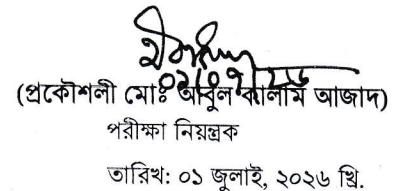 ০১/০৭/২৬
(প্রকৌশলী মোঃ আবুল কালাম আজাদ)
পরীক্ষা নিয়ন্ত্রক
তারিখ: ০১ জুলাই, ২০২৬ খ্রি.